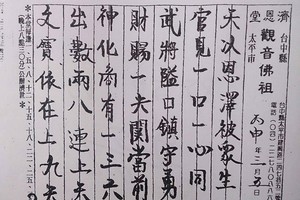 台中縣
太平市
濟恩堂
觀音佛祖
丙申年二月五日
天以恩澤被眾生
官見一口一心同
武將隘口鎮守勇
財賜一夫關當前
神化商有一三六
出數兩八連上
文寶依在上九
(晚上八點三○分)公開濟世